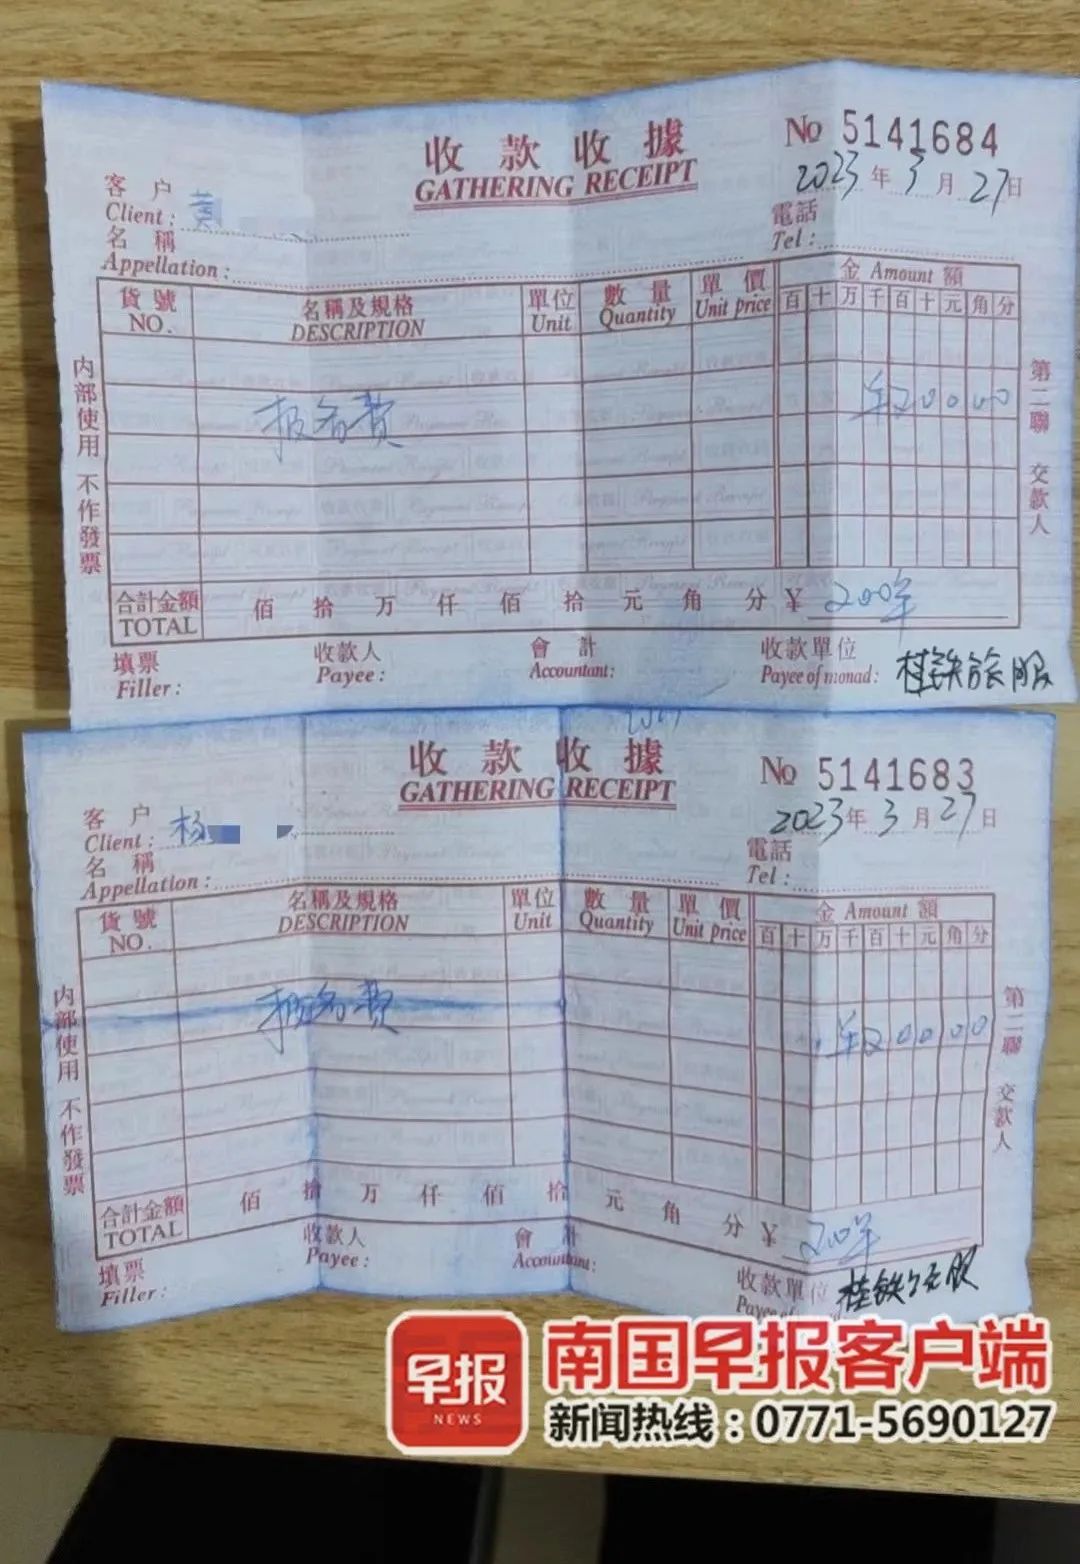 收款收據
GATHERING RECEIPT
No 5141684
2023年3月27日
客户
Client: 黄
電話
Tel:
名稱
Appellation:
貨號 名稱及規格 單位 數量 單價 金 Amount 額
NO. DESCRIPTION Unit Quantity Unit price 百 十 万 千 百 十 元 角 分
报名费 ¥20000
内部使用 不作發票
第二聯 交款人
合計金額 佰 拾 万 仟 佰 拾 元 角 分 ¥ 200
TOTAL
填票 收款人 會計 收款單位
Filler: Payee: Accountant: Payee of monad: 桂铁旅服
收款收據
GATHERING RECEIPT
No 5141683
2023年3月27日
客户
Client: 杨
電話
Tel:
名稱
Appellation:
貨號 名稱及規格 單位 數量 單價 金 Amount 額
NO. DESCRIPTION Unit Quantity Unit price 百 十 万 千 百 十 元 角 分
报名费 ¥20000
内部使用 不作發票
第二聯 交款人
合計金額 佰 拾 万 仟 佰 拾 元 角 分 ¥ 200
TOTAL
填票 收款人 會計 收款單位
Filler: Payee: Accountant: Payee of 桂铁旅服
早报
NEWS
南国早报客户端
新闻热线：0771-5690127